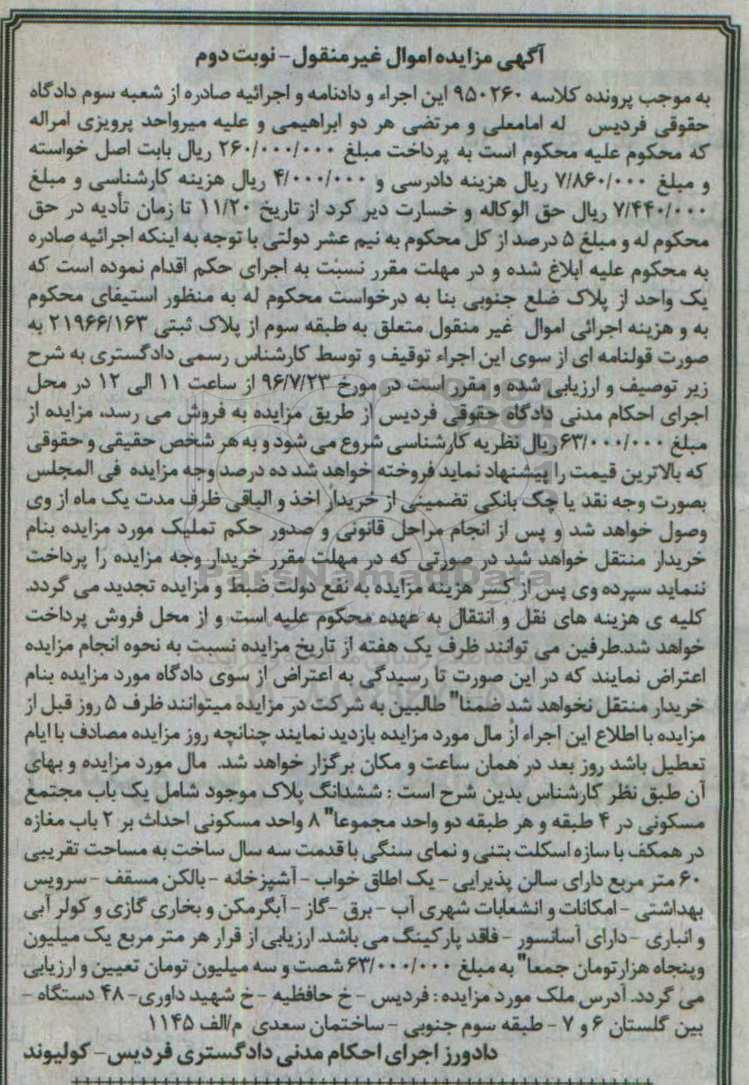 آگهی مزایده اموال غیرمنقول - نوبت دوم
به موجب پرونده کلاسه ۹۵۰۲۶۰ این اجراء و دادنامه و اجرائیه صادره از شعبه سوم دادگاه
حقوقی فردیس له امامعلی و مرتضی هر دو ابراهیمی و علیه میرواحد پرویزی امراله
که محکوم علیه محکوم است به پرداخت مبلغ ۲۶۰/۰۰۰/۰۰۰ ریال بابت اصل خواسته
و مبلغ ۷/۸۶۰/۰۰۰ ریال هزینه دادرسی و ۴/۰۰۰/۰۰۰ ریال هزینه کارشناسی و مبلغ
۷/۴۴۰/۰۰۰ ریال حق الوکاله و خسارت دیر کرد از تاریخ ۱۱/۲۰ تا زمان تأدیه در حق
محکوم له و مبلغ ۵ درصد از کل محکوم به نیم عشر دولتی با توجه به اینکه اجرائیه صادره
به محکوم علیه ابلاغ شده و در مهلت مقرر نسبت به اجرای حکم اقدام نموده است که
یک واحد از پلاک ضلع جنوبی بنا به درخواست محکوم له به منظور استیفای محکوم
به و هزینه اجرائی اموال غیر منقول متعلق به طبقه سوم از پلاک ثبتی ۲۱۹۶۶/۱۶۳ به
صورت قولنامه ای از سوی این اجراء توقیف و توسط کارشناس رسمی دادگستری به شرح
زیر توصیف و ارزیابی شده و مقرر است در مورخ ۹۶/۷/۲۳ از ساعت ۱۱ الی ۱۲ در محل
اجرای احکام مدنی دادگاه حقوقی فردیس از طریق مزایده به فروش می رسد، مزایده از
مبلغ ۶۳/۰۰۰/۰۰۰ریال نظریه کارشناسی شروع می شود و به هر شخص حقیقی و حقوقی
که بالاترین قیمت را پیشنهاد نماید فروخته خواهد شد ده درصد وجه مزایده فی المجلس
بصورت وجه نقد یا چک بانکی تضمینی از خریدار اخذ و الباقی ظرف مدت یک ماه از وی
وصول خواهد شد و پس از انجام مراحل قانونی و صدور حکم تملیک مورد مزایده بنام
خریدار منتقل خواهد شد در صورتی که در مهلت مقرر خریدار وجه مزایده را پرداخت
ننماید سپرده وی پس از کسر هزینه مزایده به نفع دولت ضبط و مزایده تجدید می گردد.
کلیه ی هزینه های نقل و انتقال به عهده محکوم علیه است و از محل فروش پرداخت
خواهد شد.طرفین می توانند ظرف یک هفته از تاریخ مزایده نسبت به نحوه انجام مزایده
اعتراض نمایند که در این صورت تا رسیدگی به اعتراض از سوی دادگاه مورد مزایده بنام
خریدار منتقل نخواهد شد ضمنا" طالبین به شرکت در مزایده میتوانند ظرف ۵ روز قبل از
مزایده با اطلاع این اجراء از مال مورد مزایده بازدید نمایند چنانچه روز مزایده مصادف با ایام
تعطیل باشد روز بعد در همان ساعت و مکان برگزار خواهد شد. مال مورد مزایده و بهای
آن طبق نظر کارشناس بدین شرح است : ششدانگ پلاک موجود شامل یک باب مجتمع
مسکونی در ۴ طبقه و هر طبقه دو واحد مجموعا" ۸ واحد مسکونی احداث بر ۲ باب مغازه
در همکف با سازه اسکلت بتنی و نمای سنگی با قدمت سه سال ساخت به مساحت تقریبی
۶۰ متر مربع دارای سالن پذیرایی - یک اطاق خواب - آشپزخانه - بالکن مسقف - سرویس
بهداشتی - امکانات و انشعابات شهری آب - برق -گاز - آبگرمکن و بخاری گازی و کولر آبی
و انباری -دارای آسانسور - فاقد پارکینگ می باشد. ارزیابی از قرار هر متر مربع یک میلیون
وپنجاه هزارتومان جمعا" به مبلغ ۶۳/۰۰۰/۰۰۰ شصت و سه میلیون تومان تعیین و ارزیابی
می گردد. آدرس ملک مورد مزایده : فردیس - خ حافظیه - خ شهید داوری- ۴۸ دستگاه -
بین گلستان ۶ و ۷ - طبقه سوم جنوبی - ساختمان سعدی م/الف ۱۱۴۵
دادورز اجرای احکام مدنی دادگستری فردیس- کولیوند
ParsNamadData